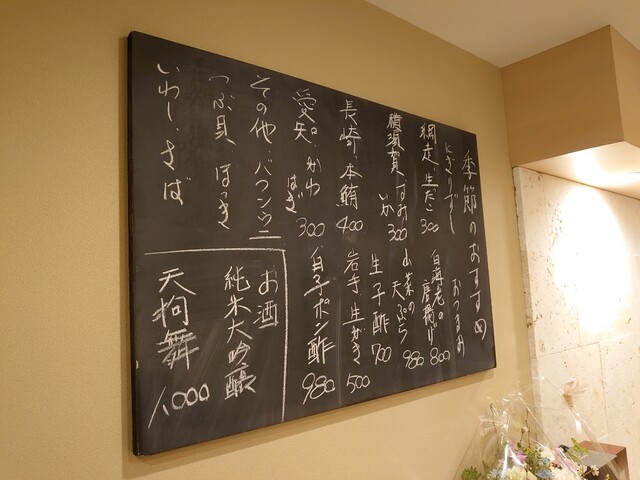 季節のおすすめ
にぎりずし
網走 生たこ 300
横須賀 すみいか 300
長崎 本鮪 400
愛知 かわはぎ 300
その他 バフンウニ
つぶ貝 ほっき
いわし、さば
おつまみ
白海老の唐揚げ 800
山菜の天ぷら 980
生子酢 700
岩手 生がき 500
白子ポン酢 980
お酒
純米大吟醸
天狗舞 1,000